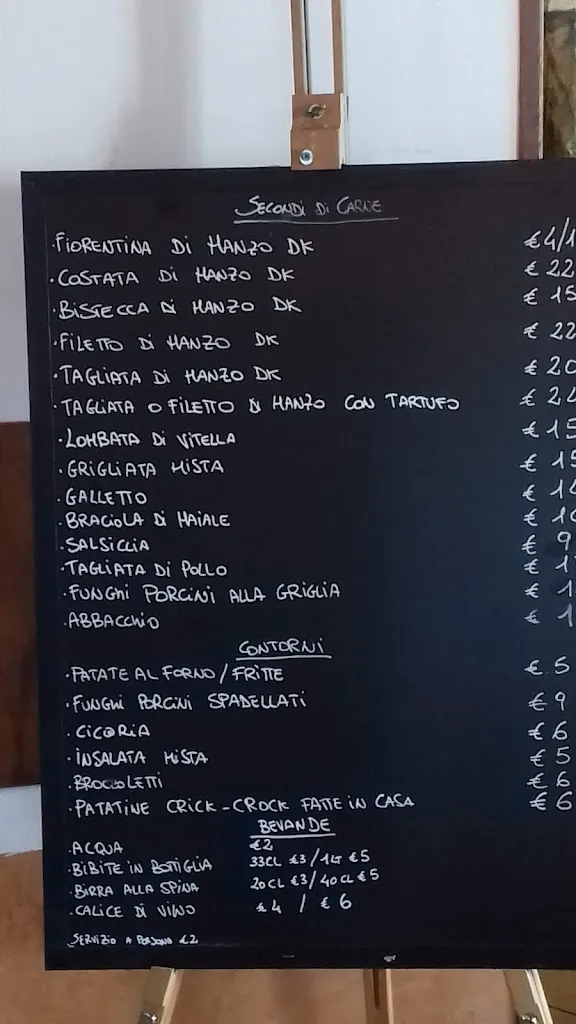 SECONDI DI CARNE
·FIORENTINA DI MANZO DK €4/1
·COSTATA DI MANZO DK € 22
·BISTECCA DI MANZO DK € 15
·FILETTO DI MANZO DK € 22
·TAGLIATA DI MANZO DK € 20
·TAGLIATA O FILETTO DI MANZO CON TARTUFO €
·LOMBATA DI VITELLA € 15
·GRIGLIATA MISTA € 15
·GALLETTO €
·BRACIOLA DI MAIALE €
·SALSICCIA € 9
·TAGLIATA DI POLLO € 1
·FUNGHI PORCINI ALLA GRIGLIA € 1
·ABBACCHIO € 1
CONTORNI
·PATATE AL FORNO/FRITTE € 5
·FUNGHI PORCINI SPADELLATI € 9
·CICORIA € 6
·INSALATA MISTA € 5
·BROCCOLETTI € 6
·PATATINE CRICK-CROCK FATTE IN CASA € 6
BEVANDE
·ACQUA €2
·BIBITE IN BOTIGLIA 33CL €3/1LT €5
·BIRRA ALLA SPINA 20CL €3/40CL €5
·CALICE DI VINO €4 / €6
SERVIZIO A PERSONA €2